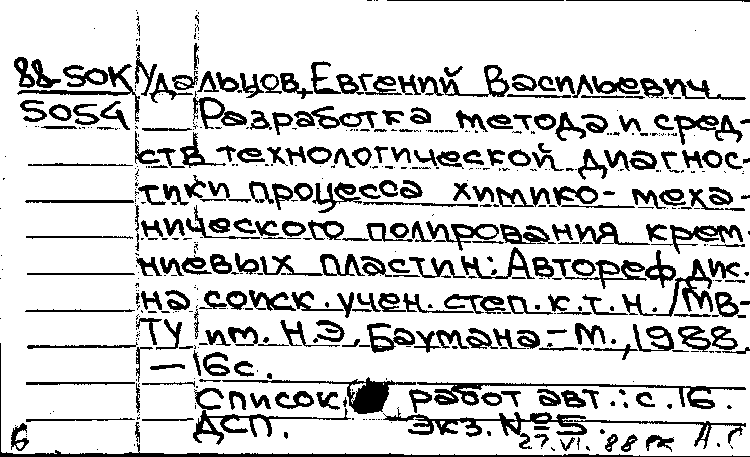 88-50К Удальцов, Евгений Васильевич.
5054 Разработка метода и сред-
ств технологической диагнос-
тики процесса химико-меха-
нического полирования крем-
ниевых пластин: Автореф. дис.
на соиск. учен. степ. к.т.н. / МВ-
ТУ им. Н.Э. Баумана.-М., 1988.
—16с.
Список работ авт.: с.16.
ДСП. Экз. №5.
Б 27.VI.88